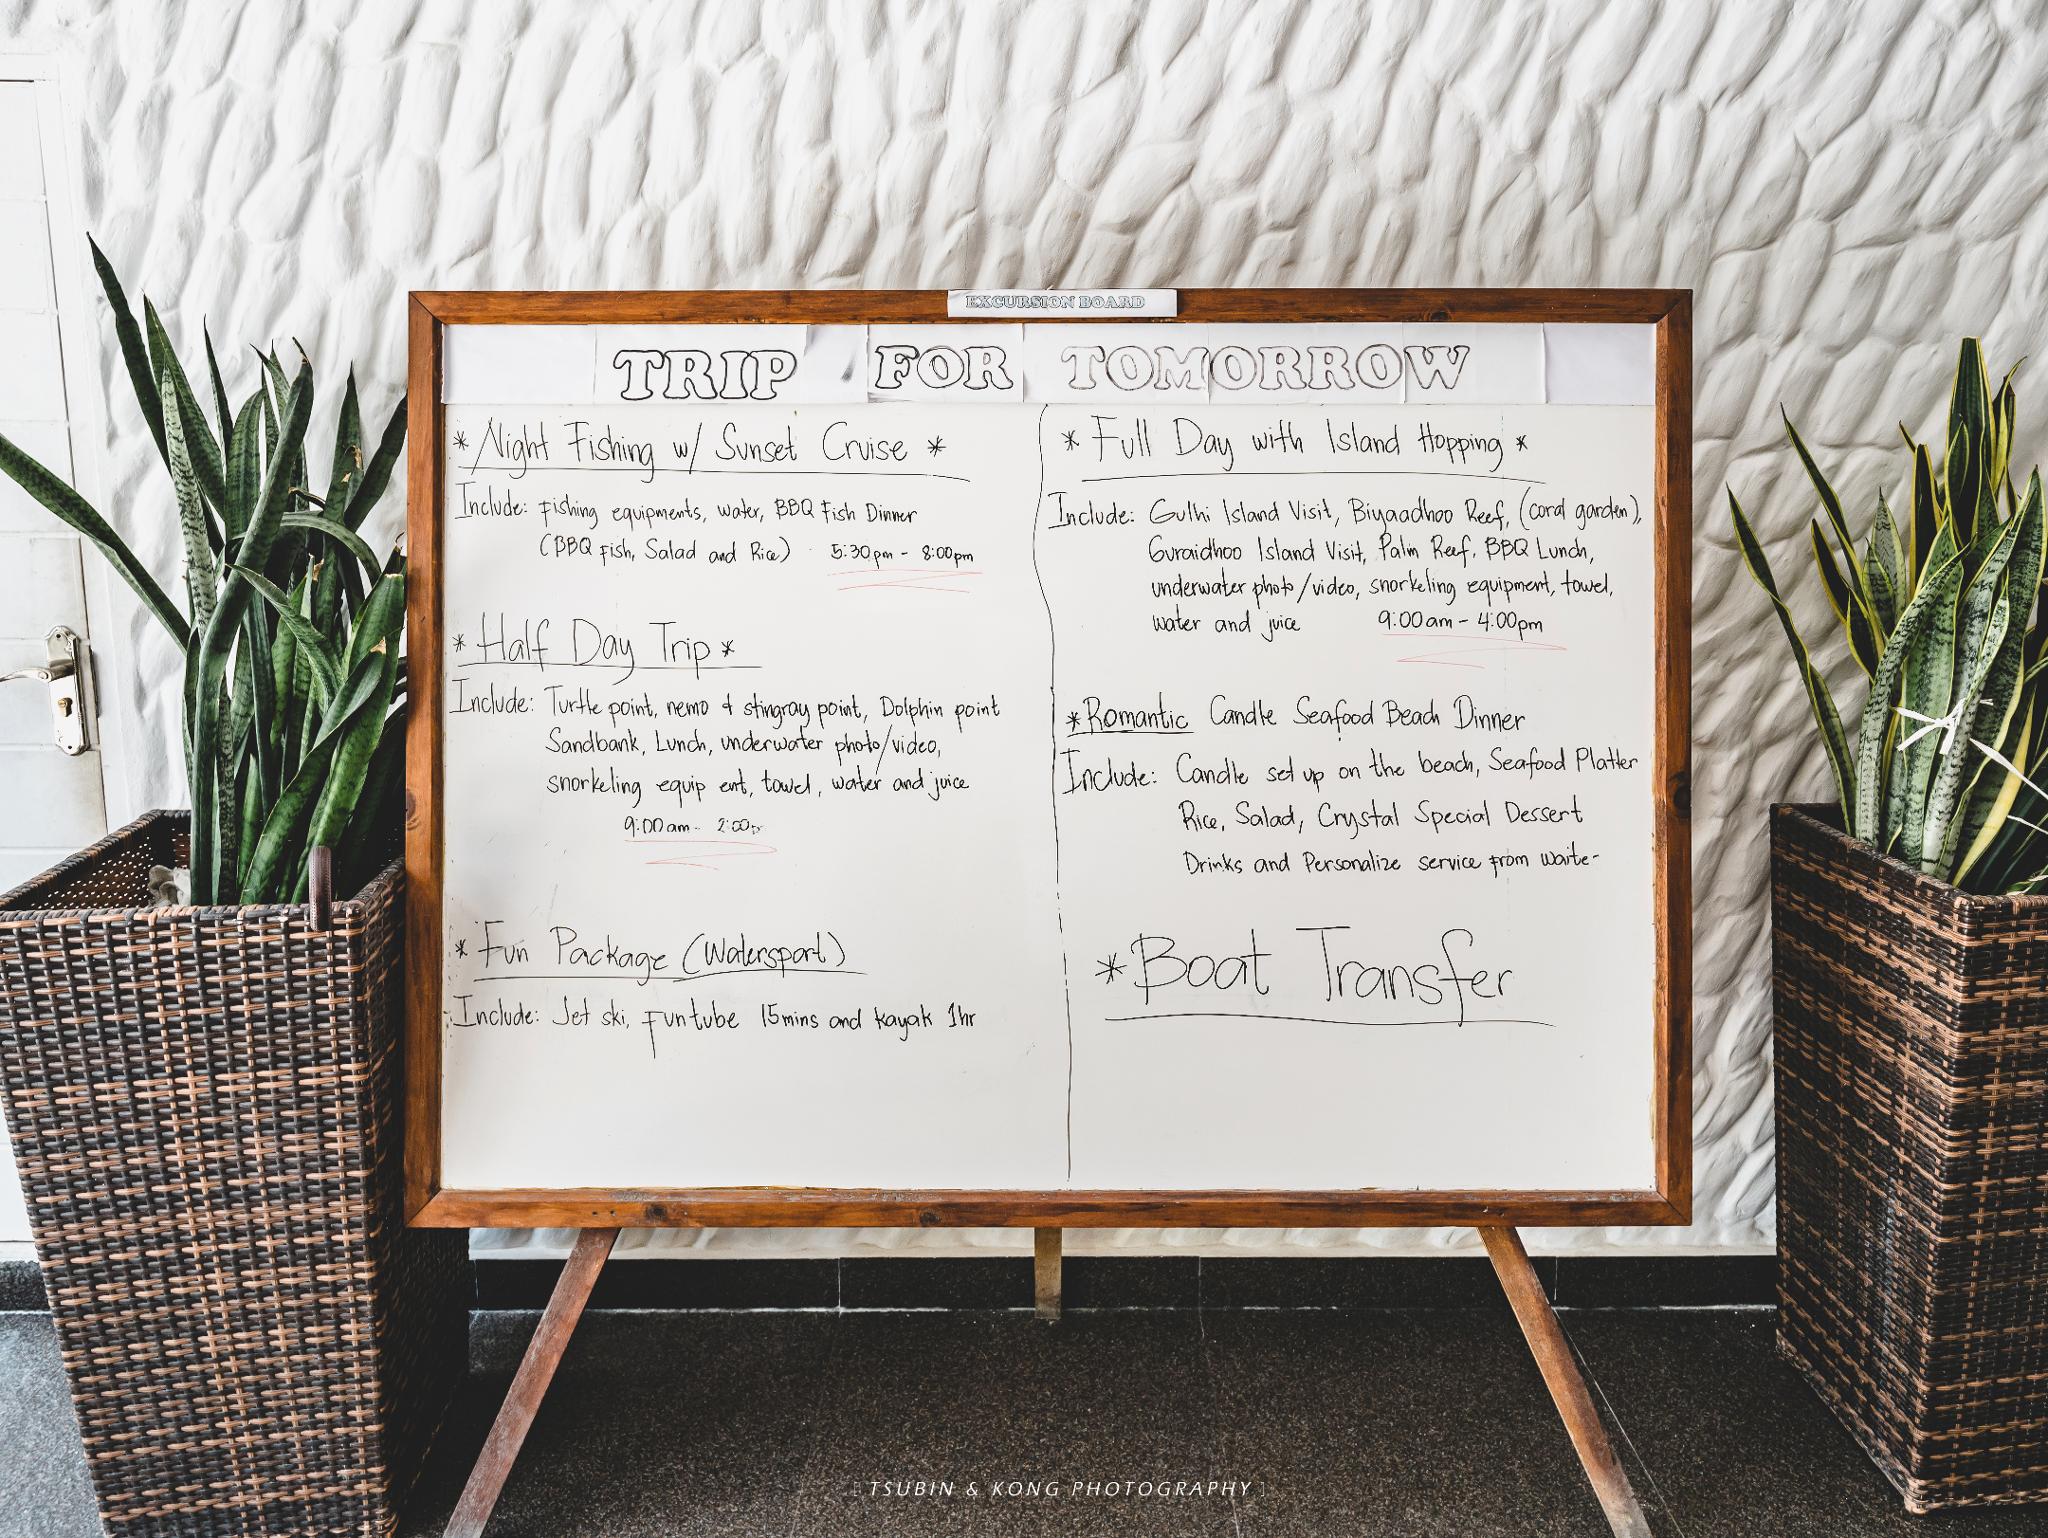 EXCURSION BOARD
TRIP FOR TOMORROW
* Night Fishing w/ Sunset Cruise *
Include: Fishing equipments, water, BBQ Fish Dinner
(BBQ Fish, Salad and Rice) 5:30pm - 8:00pm
* Half Day Trip *
Include: Turtle point, nemo & stingray point, Dolphin point
Sandbank, Lunch, underwater photo/video,
snorkeling equip ent, towel, water and juice
9:00am - 2:00p
* Fun Package (Watersport)
Include: Jet ski, Funtube 15mins and kayak 1hr
* Full Day with Island Hopping *
Include: Gulhi Island Visit, Biyaadhoo Reef, (coral garden),
Guraidhoo Island Visit, Palm Reef, BBQ Lunch,
underwater photo/video, snorkeling equipment, towel,
water and juice 9:00am - 4:00pm
* Romantic Candle Seafood Beach Dinner
Include: Candle set up on the beach, Seafood Platter
Rice, Salad, Crystal Special Dessert
Drinks and Personalize service from waite-
* Boat Transfer
TSUBIN & KONG PHOTOGRAPHY